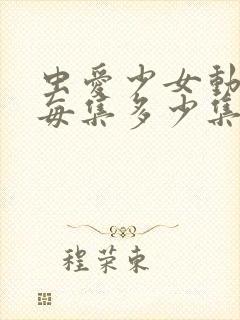 虫愛少女動
每集多少集
程荣東